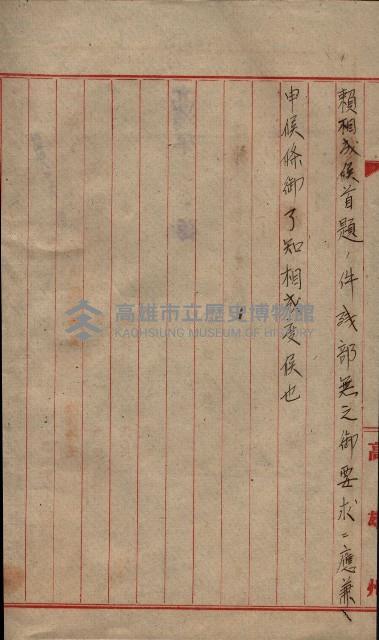 賴相成候首題ノ件残部無之御要求ニ應兼
申候條御了知相成度候也
高雄州
高雄市立歷史博物館
KAOHSIUNG MUSEUM OF HISTORY